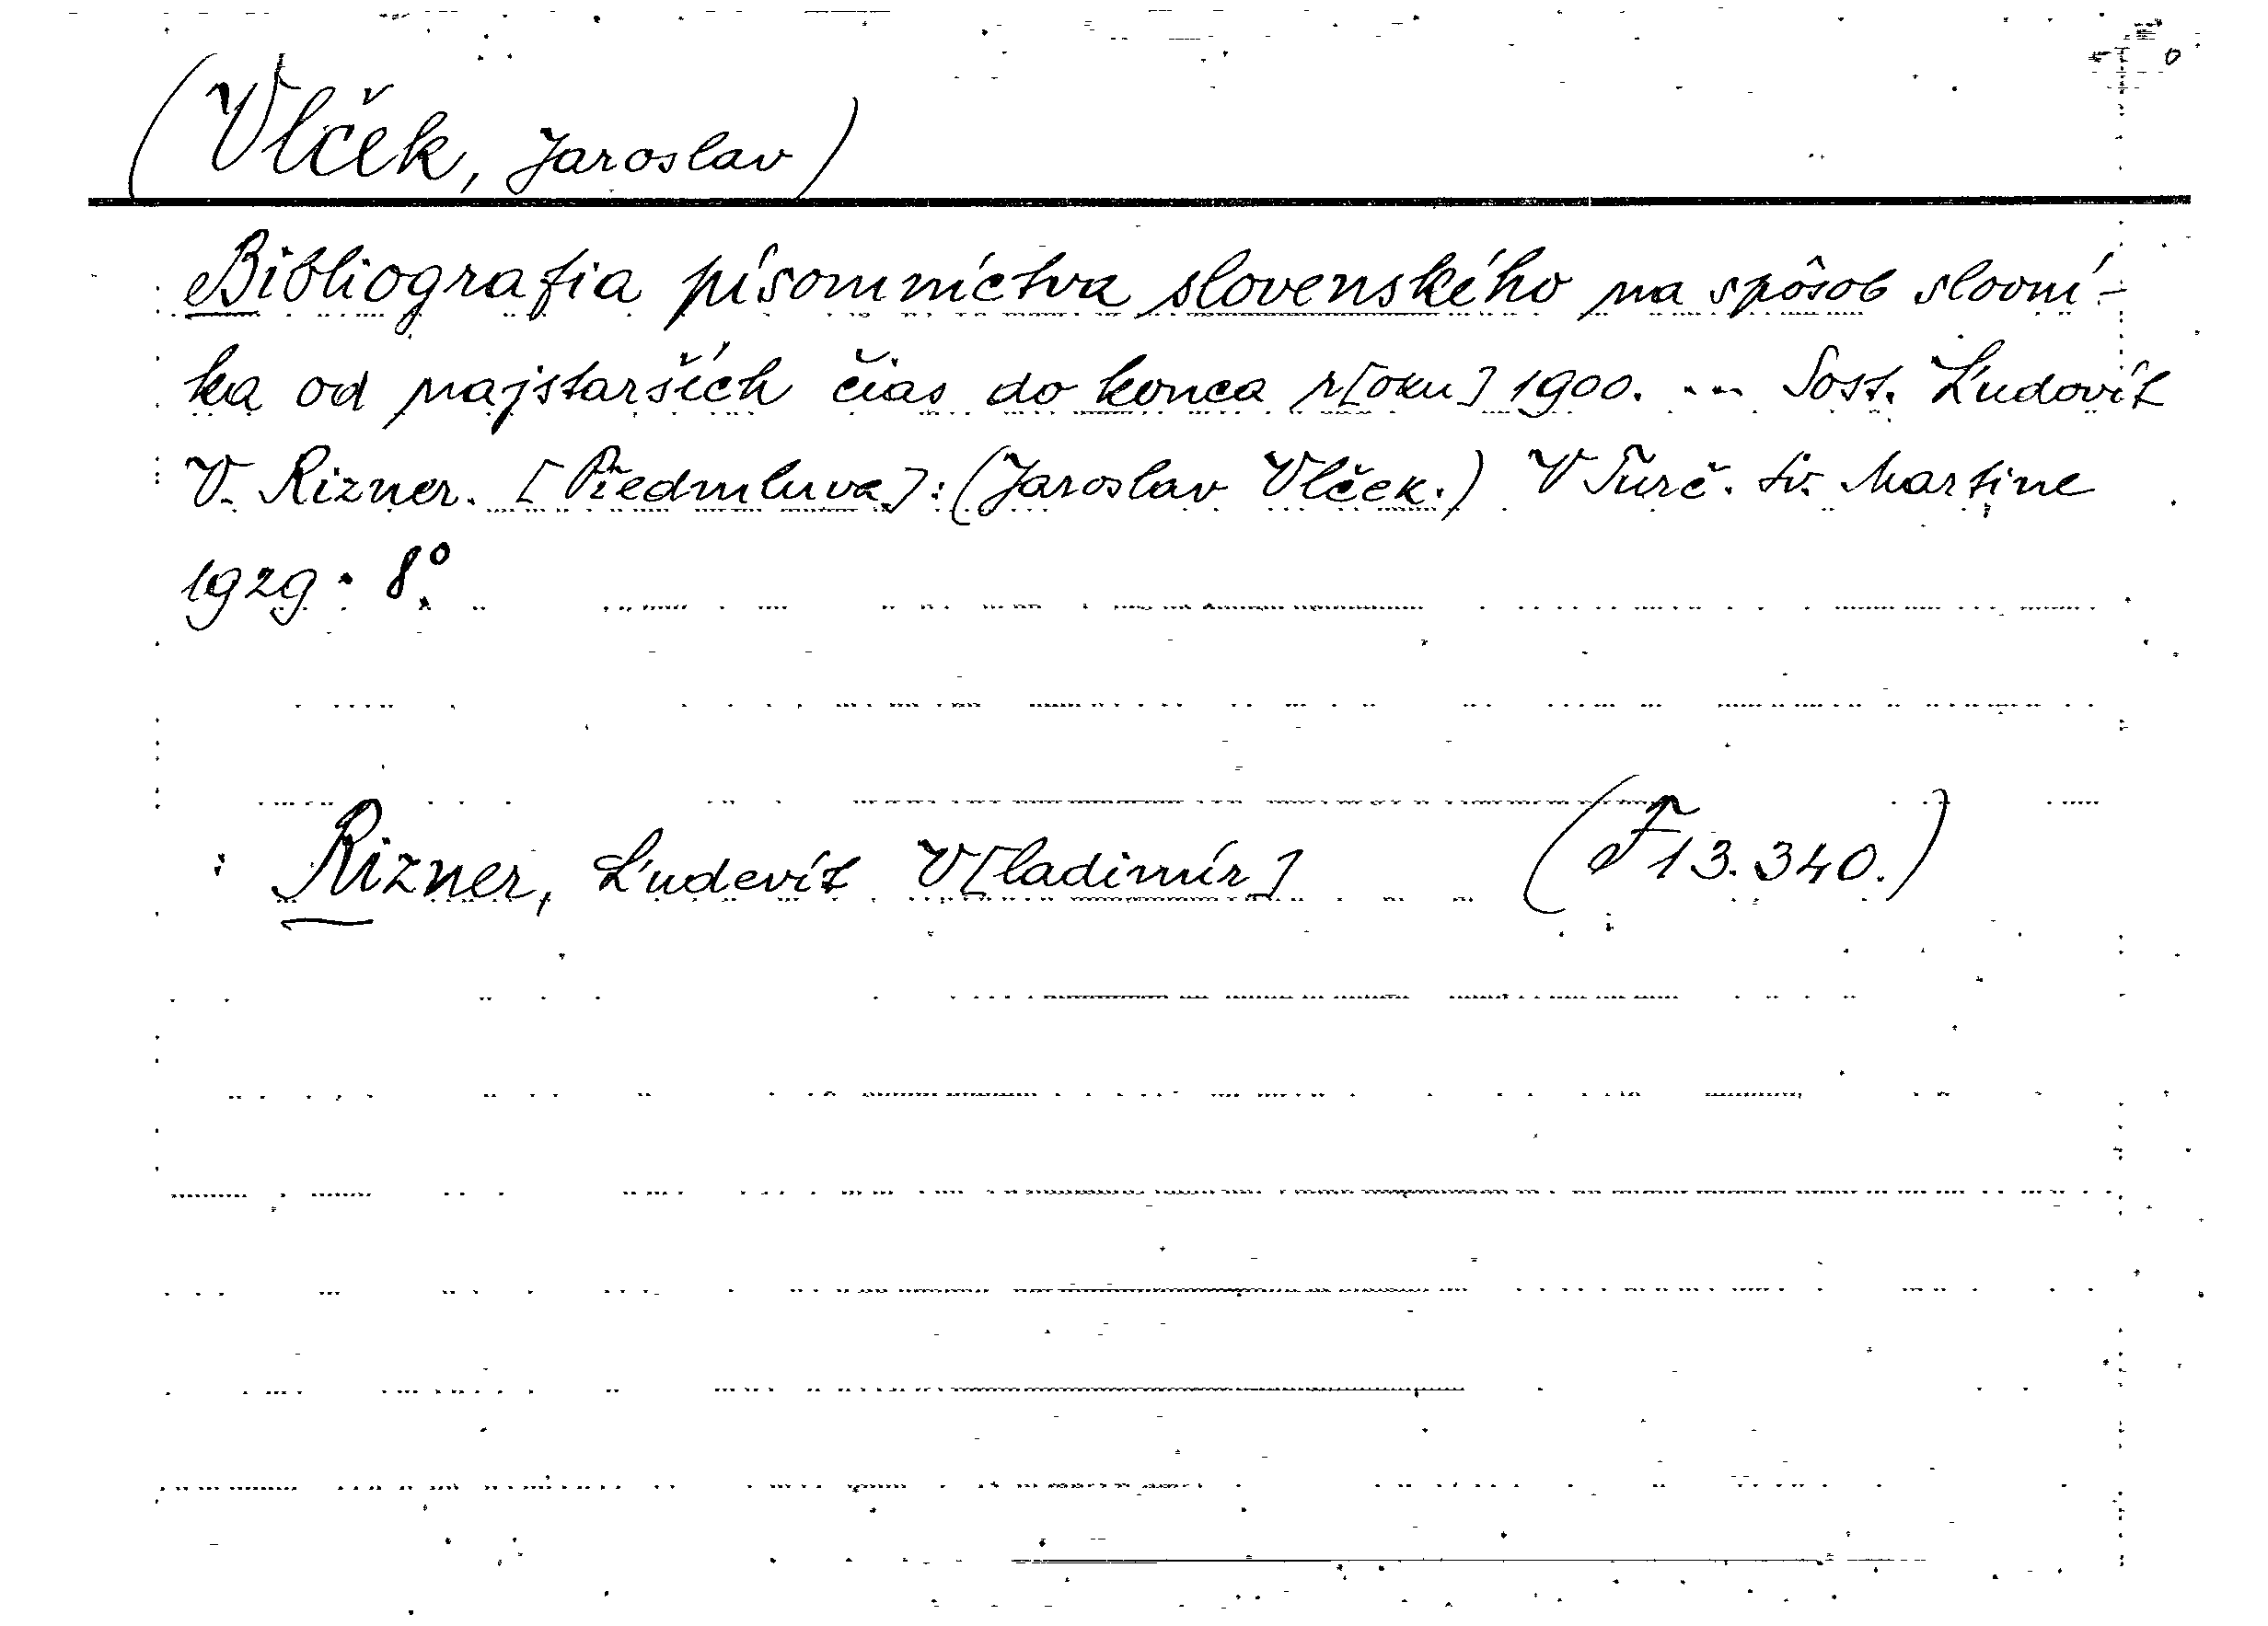 (Vlček, Jaroslav)
Bibliografia písomníctva slovenského na spôsob slovní-
ka od najstarších čias do konca r[oku] 1900. ... Sost. Ľudovít
V. Rizner. [Předmluva]: (Jaroslav Vlček.) V Turč. sv. Martine
1929. 8°.
Rizner, Ľudevít V[ladimír] (F 13.340.)